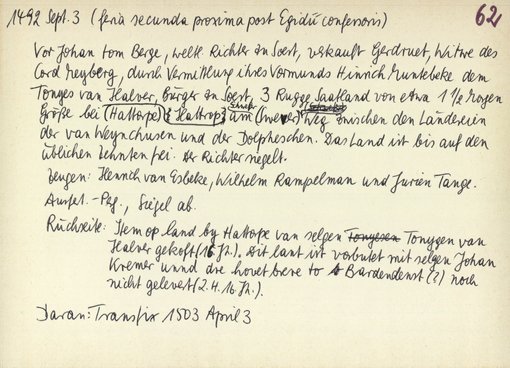 1492 Sept. 3 (feria secunda proxima post Egidii confessoris) 62
Vor Johan tom Berge, weltl. Richter zu Soest, verkauft Gerdruet, Witwe des
Cord Meyberg, durch Vermittlung ihres Vormunds Hinrich Muntebeke dem
Tonyes van Halver, Bürger zu Soest, 3 Rugge Saatland von etwa 1 1/2 Morgen
Größe bei (Hattorpe) (Hattrop) am Weg zwischen den Ländereien
der van Meynchusen und der Dolpheschen. Das Land ist bis auf den
üblichen Zehnten frei. Der Richter siegelt.
Zeugen: Henrich van Esbeke, Wilhelm Rampelman und Jurien Tange.
Ausf. - Pg., Siegel ab.
Rückseite: Item op land by Hattorpe van selgen Tonyesen Tonygen van
Halver gekoft (16. Jh.). Dit lant ist vorbutet mit selgen Johan
Kremer unnd dre hovet breve to Bardendenst (?) noch
nicht gelevert (2. H. 16. Jh.).
Daran: Transfix 1503 April 3